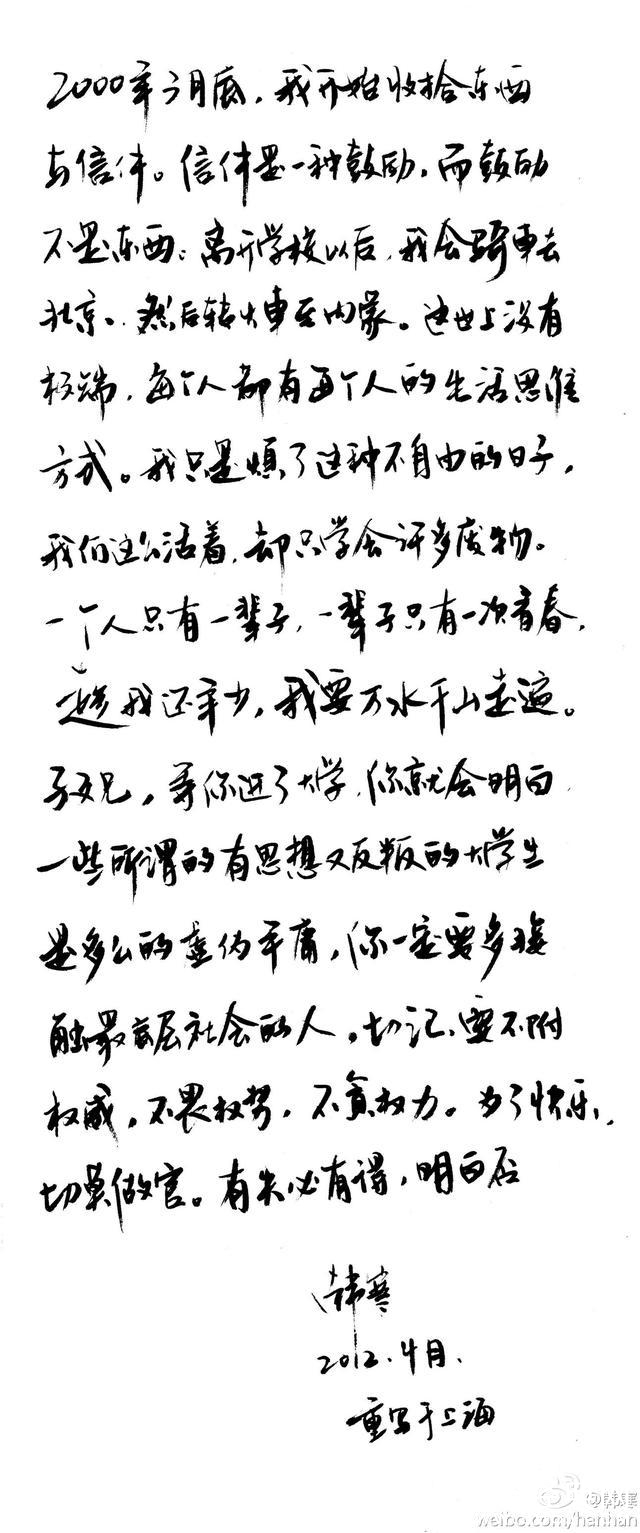 2000年3月底，我开始收拾东西
与信件。信件是一种鼓励，而鼓励
不是东西。离开学校以后，我会骑车去
北京。然后转火车至内蒙。这世上没有
极端，每个人都有每个人的生活思维
方式。我只是烦了这种不自由的日子，
我们这么活着，却只学会许多废物。
一个人只有一辈子，一辈子只有一次青春，
趁我还年少，我要万水千山走遍。
子兄，等你进了大学，你就会明白，
一些所谓的有思想又反叛的大学生
是多么的虚伪平庸，你一定要多接
触最底层社会的人，切记，要不附
权威，不畏权势，不贪权力。为了快乐，
切莫做官。有失必有得，明白否
韩寒
2012.4月.
重写于上海
@韩寒
weibo.com/hanhan